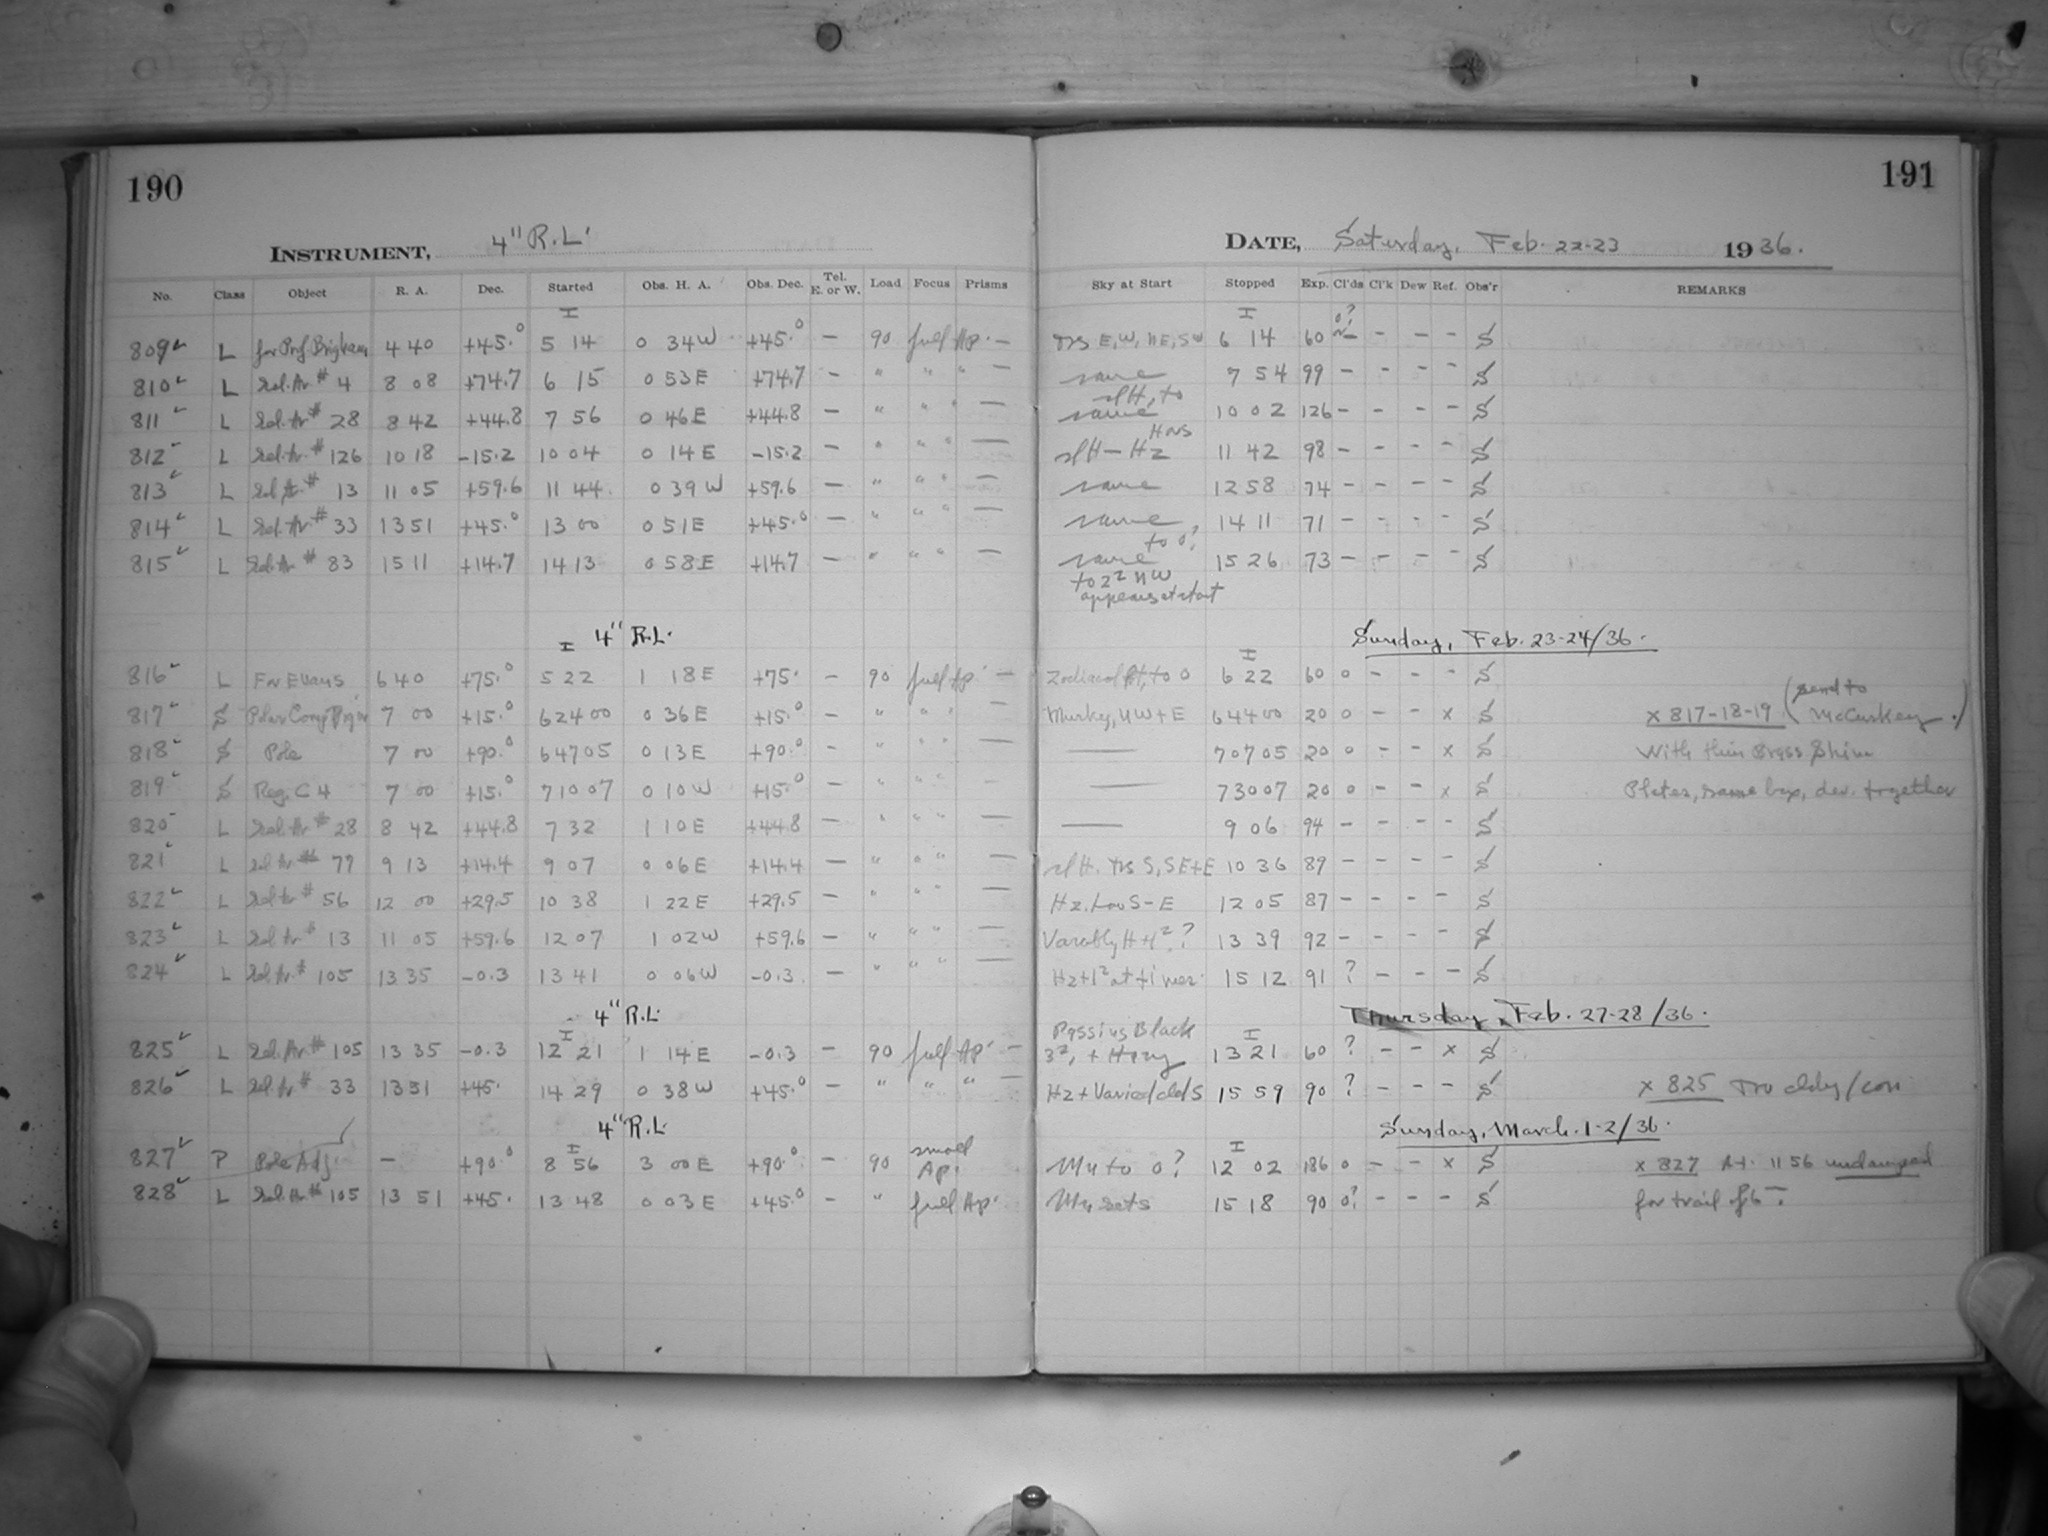 190
191
INSTRUMENT, 4" R.L.
DATE, Saturday, Feb. 22-23 1936.
No. Class Object R. A. Dec. Started Obs. H. A. Obs. Dec. Tel. E. or W. Load Focus Prisms Sky at Start Stopped Exp. Cl'ds Cl'k Dew Ref. Obs'r REMARKS
809 L for Prof. Brigham 4 40 +45.° 5 14 0 34W +45.° - 90 full Ap. - E, W, NE, SW 6 14 60 - - - S
810 L Sel. Ar # 4 8 08 +74.7 6 15 0 53E +74.7 - " " " - same 7 54 99 - - - - S
811 L Sel. Ar # 28 8 42 +44.8 7 56 0 46E +44.8 - " " " - same slH, to 10 02 126 - - - - S
812 L Sel. Ar # 126 10 18 -15.2 10 04 0 14E -15.2 - " " " - slH - Hz 11 42 98 - - - - S
813 L Sel. Ar # 13 11 05 +59.6 11 44 0 39W +59.6 - " " " - same 12 58 74 - - - - S
814 L Sel. Ar # 33 13 51 +45.° 13 00 0 51E +45.° - " " " - same 14 11 71 - - - - S
815 L Sel. Ar # 83 15 11 +14.7 14 13 0 58E +14.7 - " " " - same to 0? 15 26 73 - - - - S
to 2² NW
appears at start
4" R.L. Sunday, Feb. 23-24/36.
816 L For Evans 6 40 +75.° 5 22 1 18E +75. - 90 full Ap. - Zodiacal lt, to 0 6 22 60 0 - - - S
817 S Polar Comp 7 00 +15.° 6 24 00 0 36E +15.° - " " " - Murky, NW+E 6 44 00 20 0 - - x S x 817-18-19 (send to McCuskey.)
818 S Pole 7 00 +90.° 6 47 05 0 13E +90.° - " " " - — 7 07 05 20 0 - - x S With thin Brass Shim
819 S Reg. C4 7 00 +15.° 7 10 07 0 10W +15.° - " " " - — 7 30 07 20 0 - - x S Plates, same box, dev. together
820 L Sel. Ar # 28 8 42 +44.8 7 32 1 10E +44.8 - " " " - — 9 06 94 - - - - S
821 L Sel. Ar # 77 9 13 +14.4 9 07 0 06E +14.4 - " " " - slH. S, SE+E 10 36 89 - - - - S
822 L Sel. Ar # 56 12 00 +29.5 10 38 1 22E +29.5 - " " " - Hz. low S-E 12 05 87 - - - - S
823 L Sel. Ar # 13 11 05 +59.6 12 07 1 02W +59.6 - " " " - Variably H+1²? 13 39 92 - - - - S
824 L Sel. Ar # 105 13 35 -0.3 13 41 0 06W -0.3 - " " " - Hz+1² at times 15 12 91 ? - - - S
4" R.L. Thursday, Feb. 27-28/36.
825 L Sel. Ar # 105 13 35 -0.3 12 21 1 14E -0.3 - 90 full Ap. - Passing Black 3², + Hazy 13 21 60 ? - - x S
826 L Sel. Ar # 33 13 51 +45. 14 29 0 38W +45.° - " " " - Hz + Varied clds 15 59 90 ? - - - S x 825 Too cldy/con
4" R.L. Sunday, March. 1-2/36.
827 P Pole Adj. - +90.° 8 56 3 00E +90.° - 90 small Ap. to 0? 12 02 186 0 - - x S x 827 At 11 56 undamped
828 L Sel. Ar # 105 13 51 +45. 13 48 0 03E +45.° - " full Ap. sets 15 18 90 0? - - - S for trail of 6